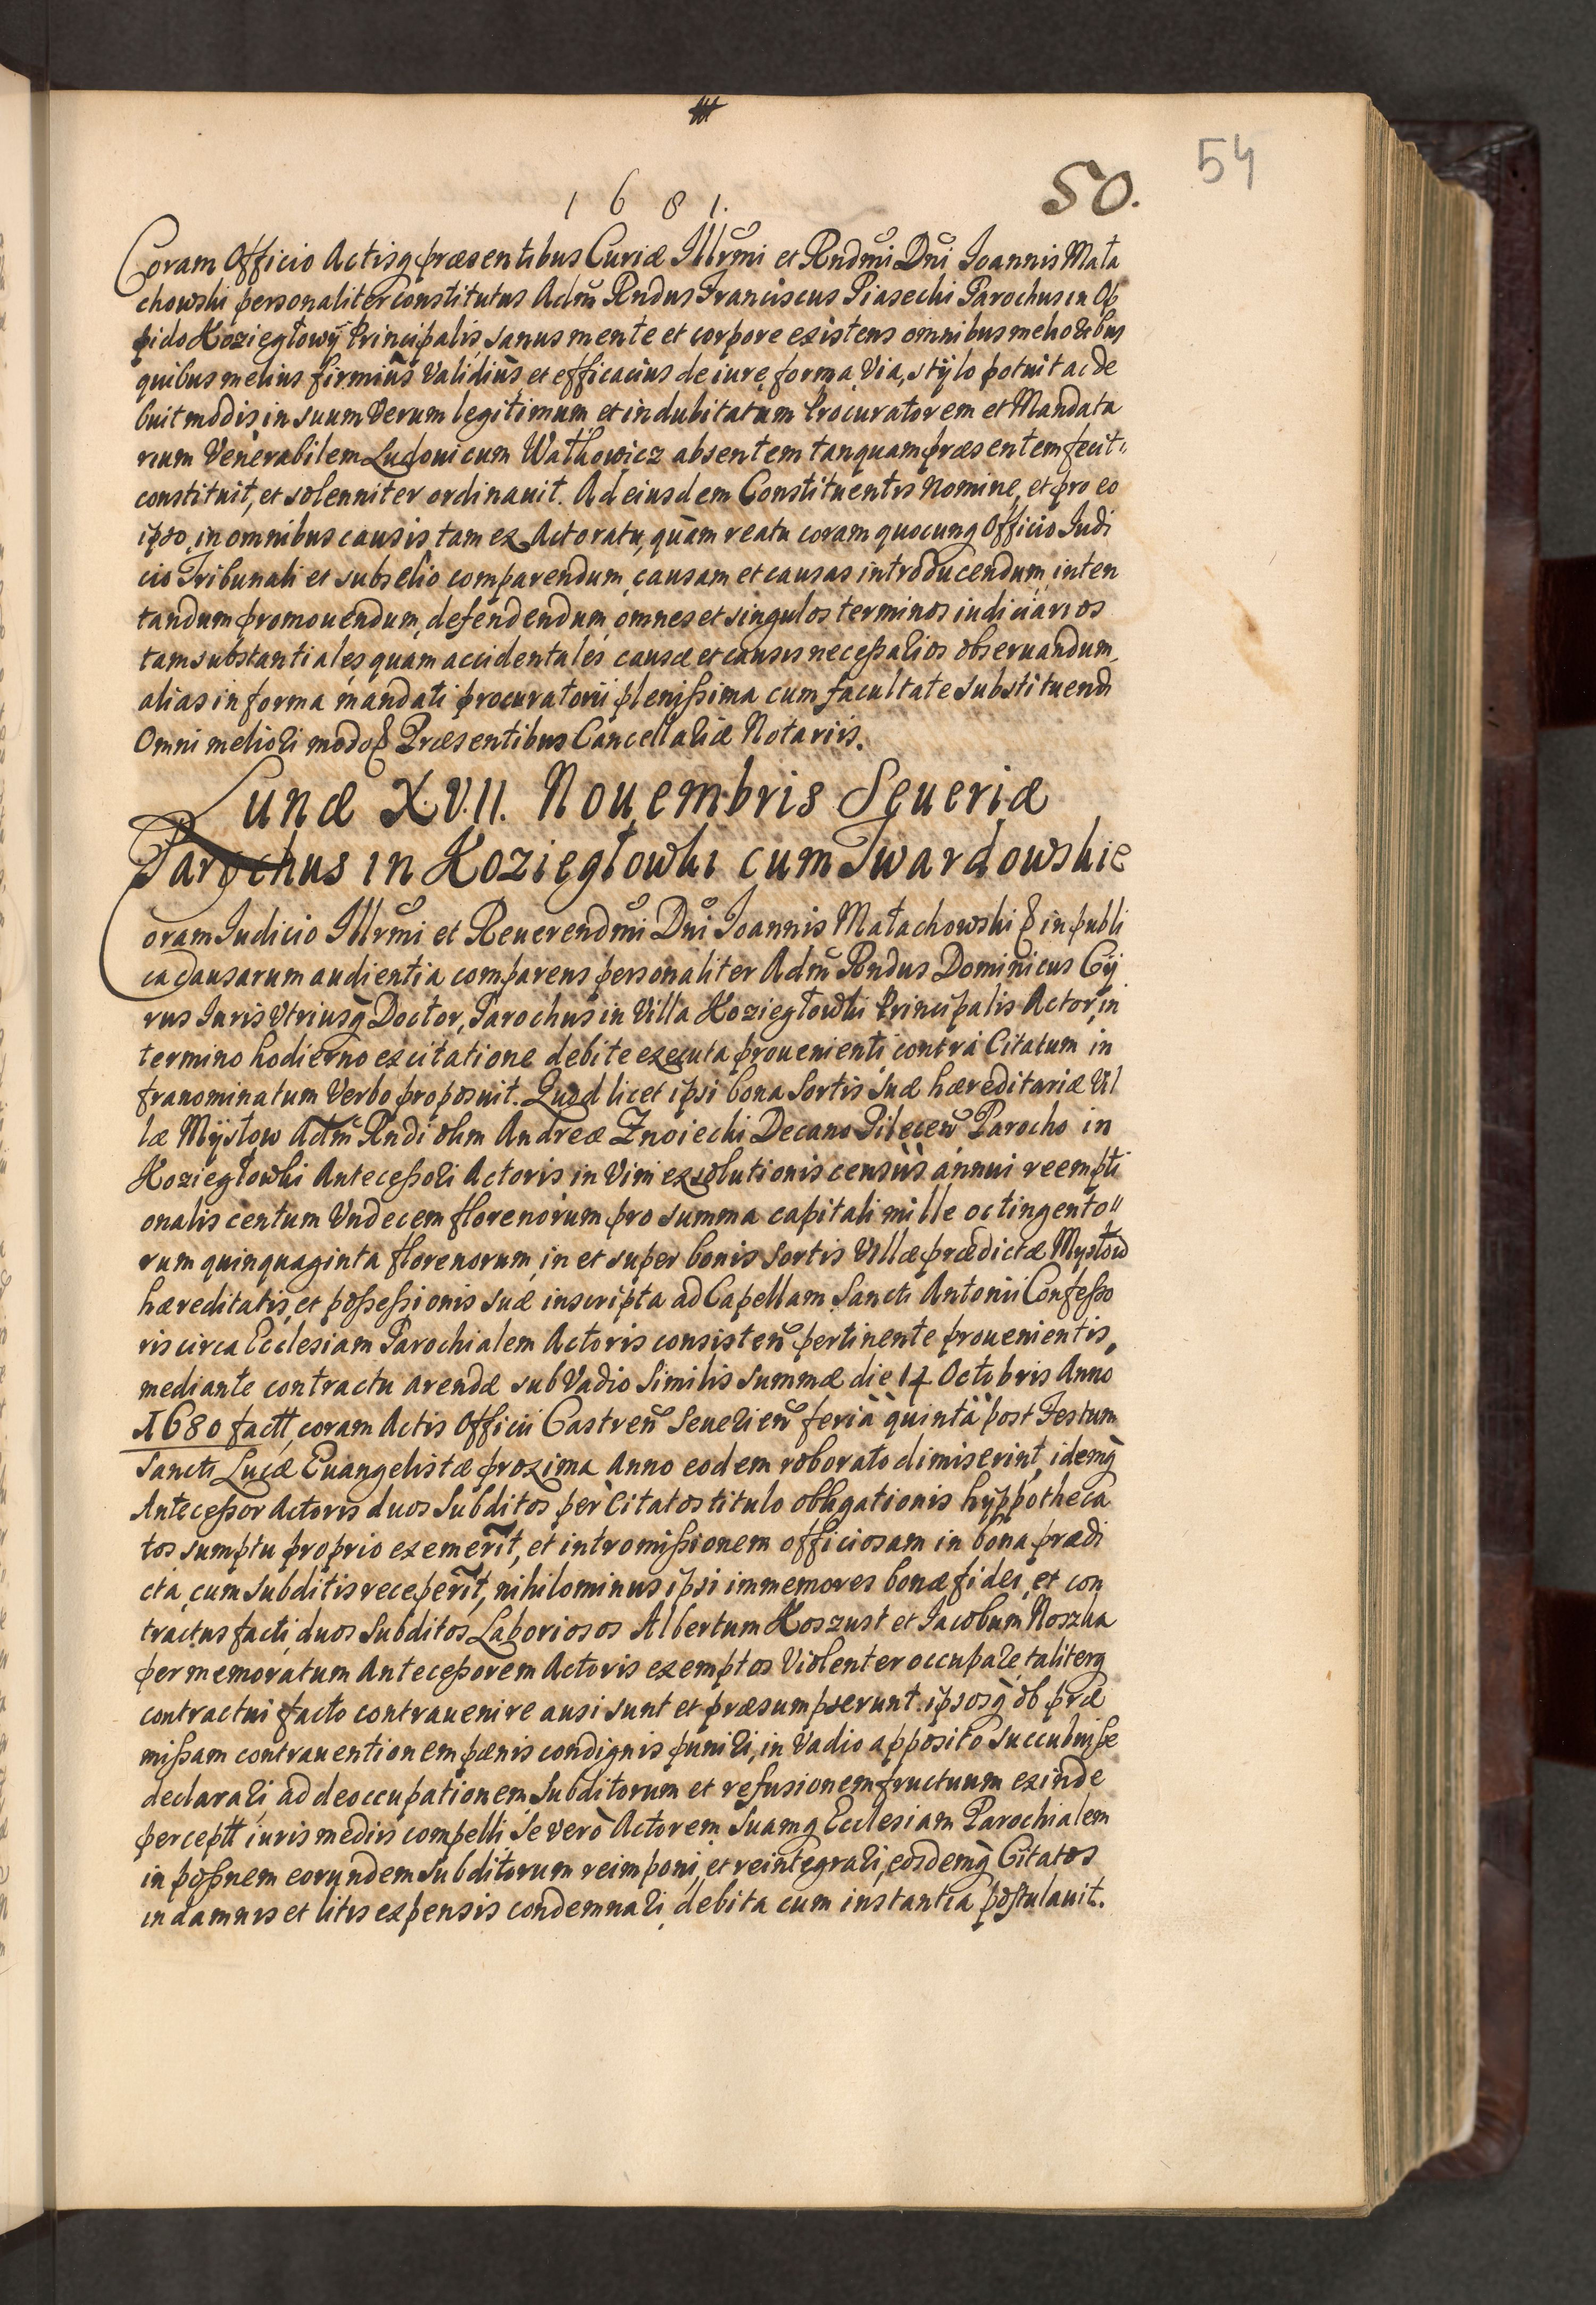 54
50.
1681.
Coram Officio Actisq præsentibus Curiæ Illrmi et Rndmi Dni Ioannis Mała
chowski personaliter constitutus Adm Rndus Franciscus Piasecki Parochus in Op
pido Koziegłowÿ Principalis sanus mente et corpore existens omnibus melioribus
quibus melius firmiùs Validiùs et efficacius de iure, forma, Via, stÿlo potuit ac de
buit modis in suum Verum legitimum et indubitatum Procuratorem et Mandata
rium Venerabilem Ludouicum Wathowicz absentem tanquam præsentem fecit
constituit, et solenniter ordinauit. Ad eiusdem Constituentis Nomine, et pro eo
ipso, in omnibus causis tam ex Actoratu, quàm reatu coram quocunq Officio Iudi
cio Tribunali et subselio comparendum, causam et causas introducendum, inten
tandum promouendum, defendendum, omnes et singulos terminos iudiciarios
tam substantiales quam accidentales causæ et causis necessarios obseruandum,
alias in forma mandati procuratorii plenissima cum facultate substituendi
Omni meliori modo & Præsentibus Cancellariæ Notariis.
Lunæ X.VII. Nouembris Seueriæ
Parochus in Koziegłowki cum Twardowskie
Coram Iudicio Illrmi et Reuerendmi Dni Ioannis Małachowski & in publi
ca Causarum audientia comparens personaliter Adm Rndus Dominicus Cÿ
rus Iuris Vtriusq Doctor, Parochus in Villa Koziegłowki Principalis Actor, in
termino hodierno ex citatione debite executa prouenienti contra Citatum in
franominatum Verbo proposuit. Quod licet ipsi bona Sortis Suæ hæreditariæ Vil
læ Mÿsłow Adm Rndi olim Andreæ Znoiecki Decano Pilecen Parocho in
Koziegłowki Antecessori Actoris in Vim exsolutionis censùs annui reempti
onalis centum Vndecem florenorum pro summa capitali mille octingento
rum quinquaginta florenorum, in et super bonis Sortis Villæ prædictæ Mysłow
hæreditatis, et possessionis suæ inscripta ad Capellam Sancti Antonii Confesso
ris circa Ecclesiam Parochialem Actoris consisten pertinente prouenientis,
mediante contractu arendæ sub Vadio Similis Summæ die 14 Octobris Anno
1680 factt, coram Actis Officii Castren Seuerien feria quinta post Festum
Sancti Lucæ Euangelistæ proxima Anno eodem roborato dimiserint, idemq
Antecessor Actoris duos Subditos per Citatos titulo obligationis hyppotheca
tos sumptu proprio exemerit, et intromissionem officiosam in bona prædi
cta, cum subditis receperit, nihilominus ipsi immemores bonæ fidei, et con
tractus facti, duos Subditos Laboriosos Albertum Koszust et Iacobum Noszka
per memoratum Antecessorem Actoris exemptos Violenter occupare, taliterq
contractui facto contrauenire ausi sunt et præsumpserunt. ipsosq ob præ
missam contrauentionem pænis condignis puniri, in Vadio apposito Succubuisse
declarari, ad deoccupationem Subditorum et refusionem fructuum exinde
perceptt iuris mediis compelli, Se verò Actorem Suamq Ecclesiam Parochialem
in possnem eorundem Subditorum reimponi, et reintegrari, eosdemq Citatos
in damnis et litis expensis condemnari, debita cum instantia postulauit.